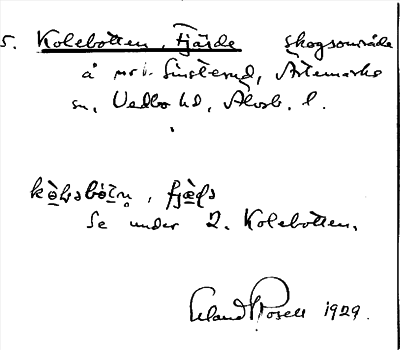 5. Kolebotten, Fjärde skogsområde
å nr 1 Sinsterud, Ärtemarks
sn, Vedbo hd, Älvsb. l.
se under 2. Kolebotten.
Erland Rosell 1929.